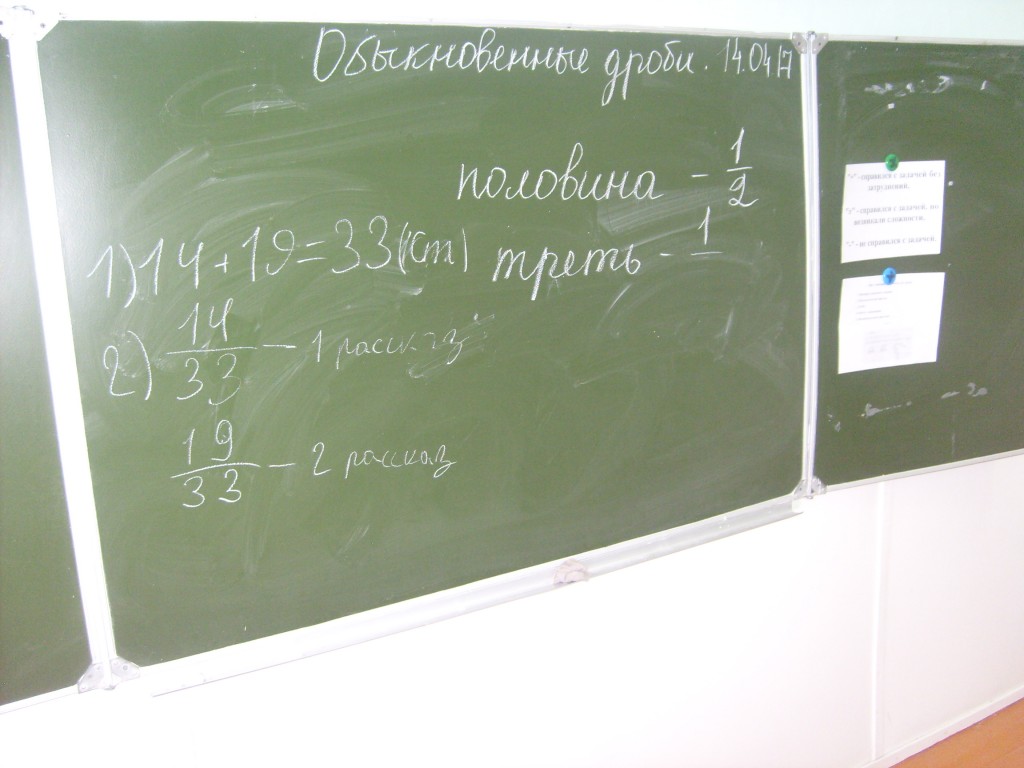 Обыкновенные дроби. 14.04.17
половина - 1/2
треть - 1/
1) 14 + 19 = 33 (ст)
2) 14/33 - 1 рассказ
19/33 - 2 рассказ
"+" - справился с задачей без
затруднений.
справился с задачей, но
возникали сложности.
"-" - не справился с задачей.